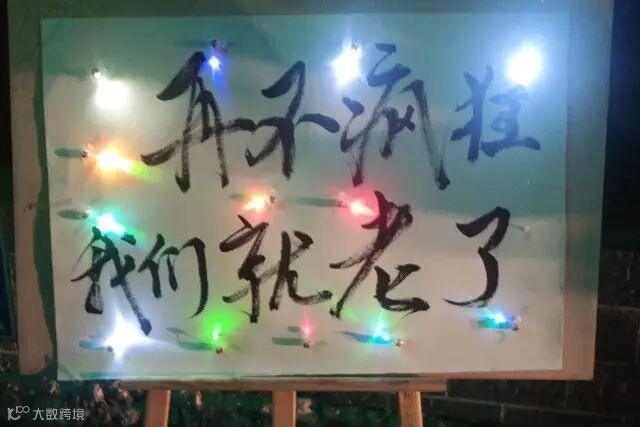 再不疯狂
我们就老了
大数跨境